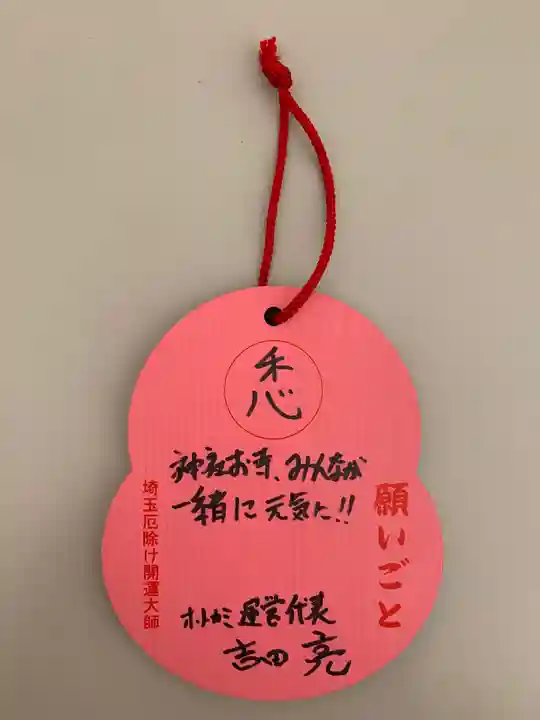 願いごと
神社お寺、みんなが
一緒に元気に!!
ホトカミ運営代表
吉田 亮
埼玉厄除け開運大師